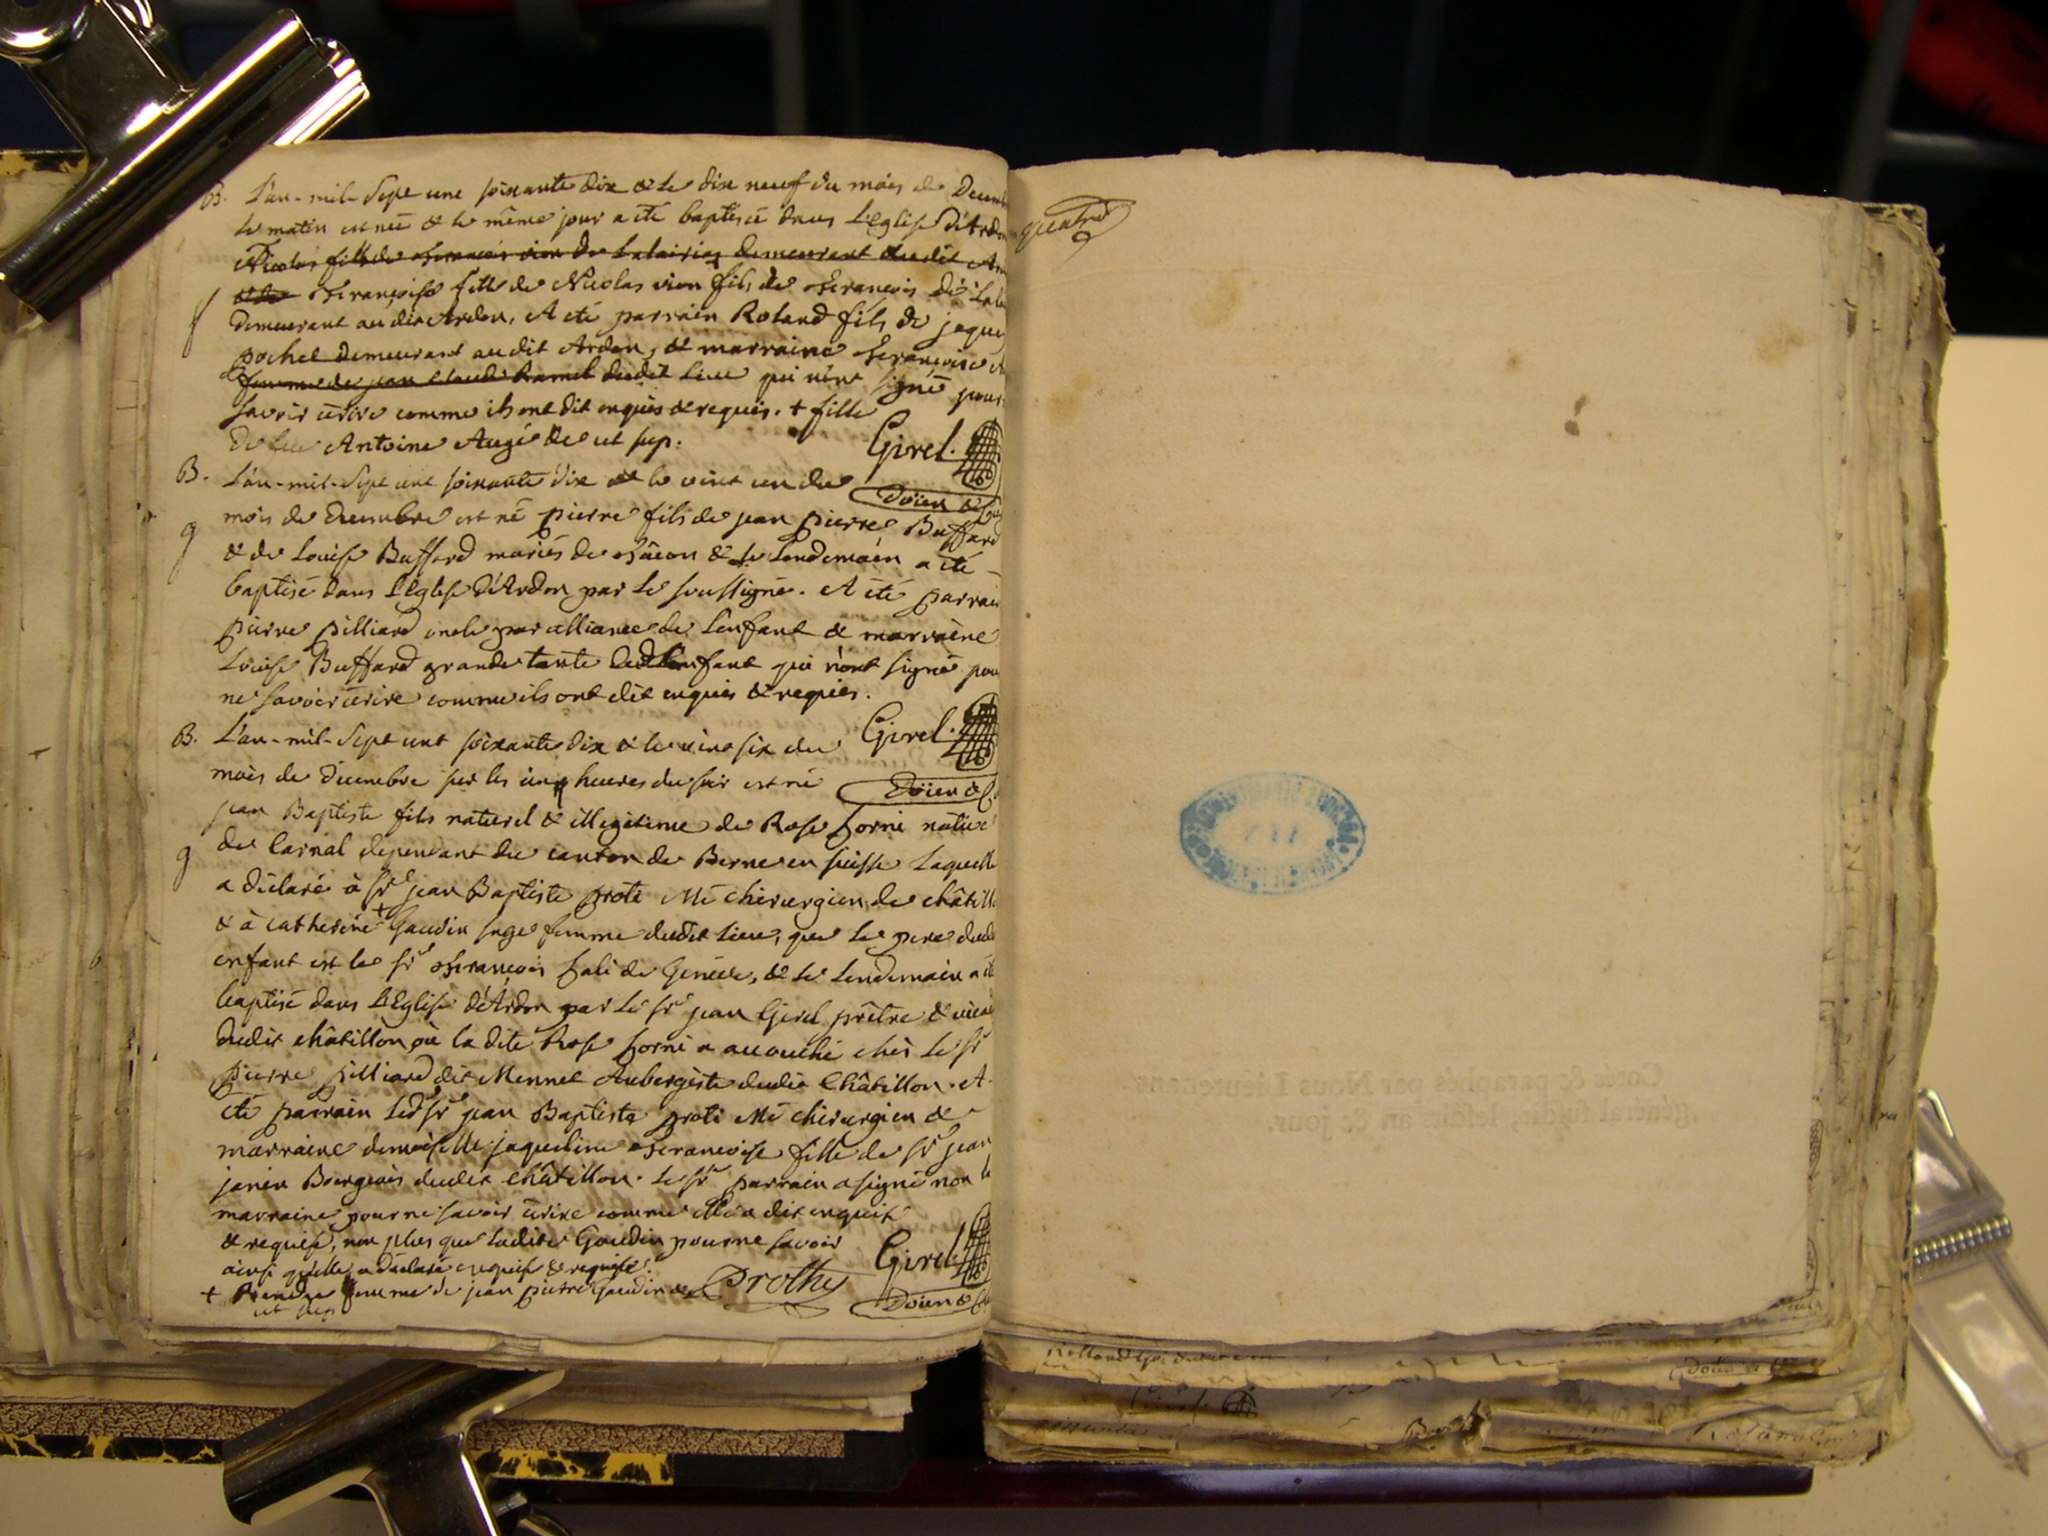 B. L'an-mil-Sept cent soixante dix & le dix neuf du mois de Decemb
le matin est née & le même jour a été baptisée dans L'Eglise d'Ardon
Nicolas fils de françois vion de Lalairiaz demeurant audit Ar
françoise fille de Nicolas vion fils de françois de Lala
f Demeurant audit Ardon, A été parrain Roland fils de jaque
pochet Demeurant audit Ardon, & marraine françoise
femme de jean Claude Ramel dudit Lieu qui n'ont signé pour
savoir écrire comme ils ont dit enquis & requis. + fille
de feu Antoine Augé de ut sup. Girel.
B. L'an-mil-Sept cent soixante dix & le vint un du Doïen &
g mois de Decembre est né pierre fils de jean pierre Buffard
& de Louise Buffard mariés de & le Lendemain a été
baptisé dans L'église d'Ardon par le soussigné. A été parrain
pierre pilliard oncle par alliance de L'enfant & marraine
Louise Buffard grande tante dud. enfant qui n'ont signé pour
ne savoir écrire comme ils ont dit enquis & requis.
B. L'an-mil-Sept cent soixante dix & le vint six du Girel.
mois de décembre sur les cinq heures du soir est né Doïen &
jean Baptiste fils naturel & illegitime de Rose Zorni native
g de Carnal dependant du canton de Berne en suisse Laquelle
a déclaré à Sr jean Baptiste proti Me chirurgien de châtill
& à catherine + Gaudin sage femme dudit Lieu, que le pere dud
enfant est le Sr françois de Genève, & le Lendemain a été
baptisé dans L'Eglise d'Ardon par le Sr jean Girel prêtre & vicai
dudit châtillon où la dite Rose Zorni a accouché chès le Sr
pierre pilliard dit Mennet Aubergiste dudit Châtillon. A
été parrain led. Sr jean Baptiste proti Me chirurgien &
marraine demoiselle jaqueline françoise fille de Sr jean
janin Bourgeois dudit Châtillon. Le Sr parrain a signé non la
marraine pour ne savoir écrire comme elle a dit enquise
& requise, non plus que ladite Gaudin pour ne savoir Girel
ainsi qu'elle a déclaré enquise & requise.
+ femme de jean pierre Gaudin & Prothy Doïen &
ut sup
quatre